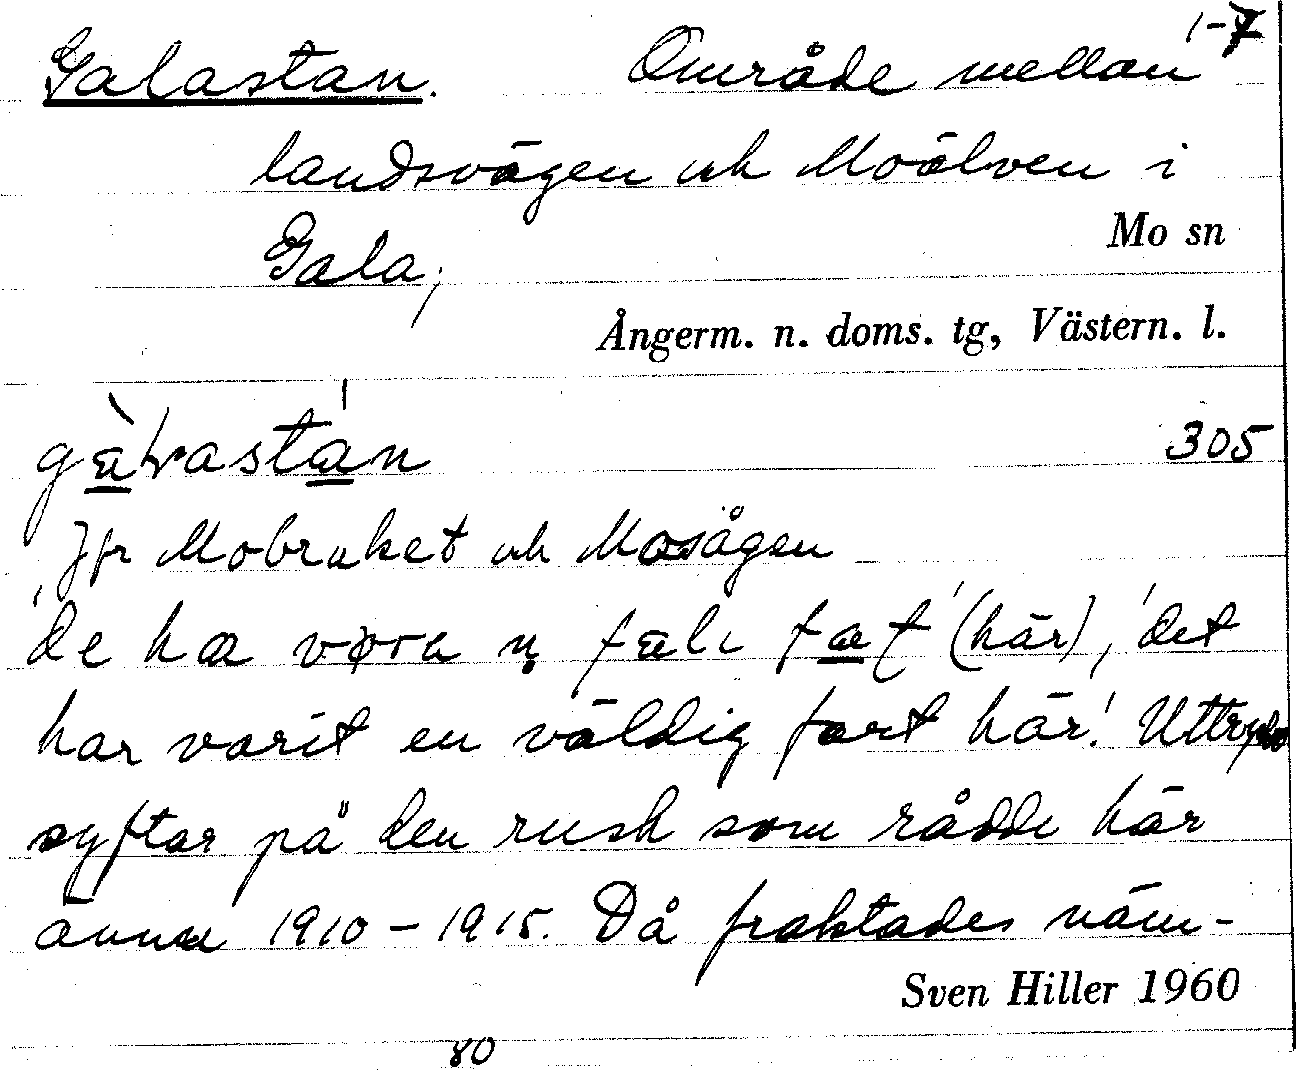 1-7
Galastan. Område mellan
landsvägen och Moälven i
Gala; Mo sn
Ångerm. n. doms. tg, Västern. l.
305
Jfr Mobruket och Mosågen
'de ha vøra n̥ fali fat' (här), 'det
har varit en väldig fart här'. Uttrycket
syftar på den rush som rådde här
ännu 1910-1915. Då fraktades näm-
Sven Hiller 1960
80